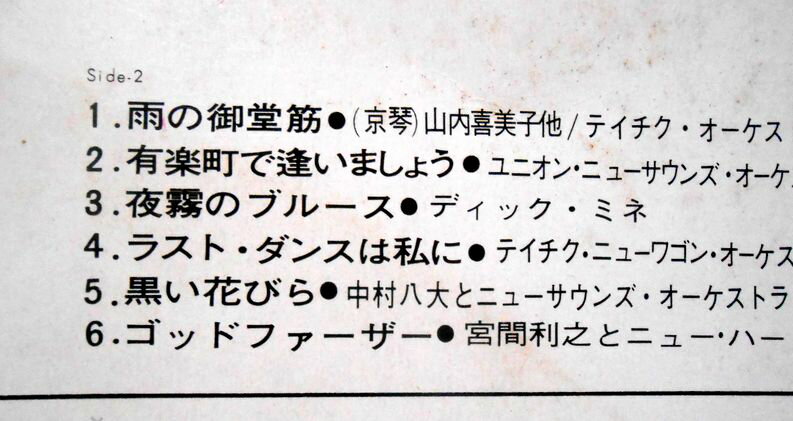 Side-2
1.雨の御堂筋●(京琴)山内喜美子他/テイチク・オーケス
2.有楽町で逢いましょう●ユニオン・ニューサウンズ・オーケ
3.夜霧のブルース●ディック・ミネ
4.ラスト・ダンスは私に●テイチク・ニューワゴン・オーケス
5.黒い花びら●中村八大とニューサウンズ・オーケストラ
6.ゴッドファーザー●宮間利之とニュー・ハー